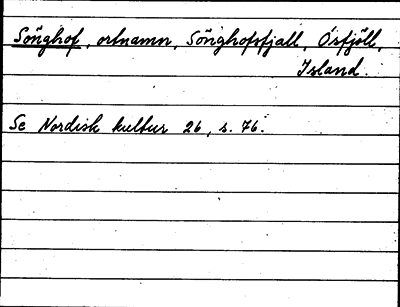 Sönghof, ortnamn, Sönghofsfjall, Ósfjöll,
Island.
Se Nordisk kultur 26, s. 76.